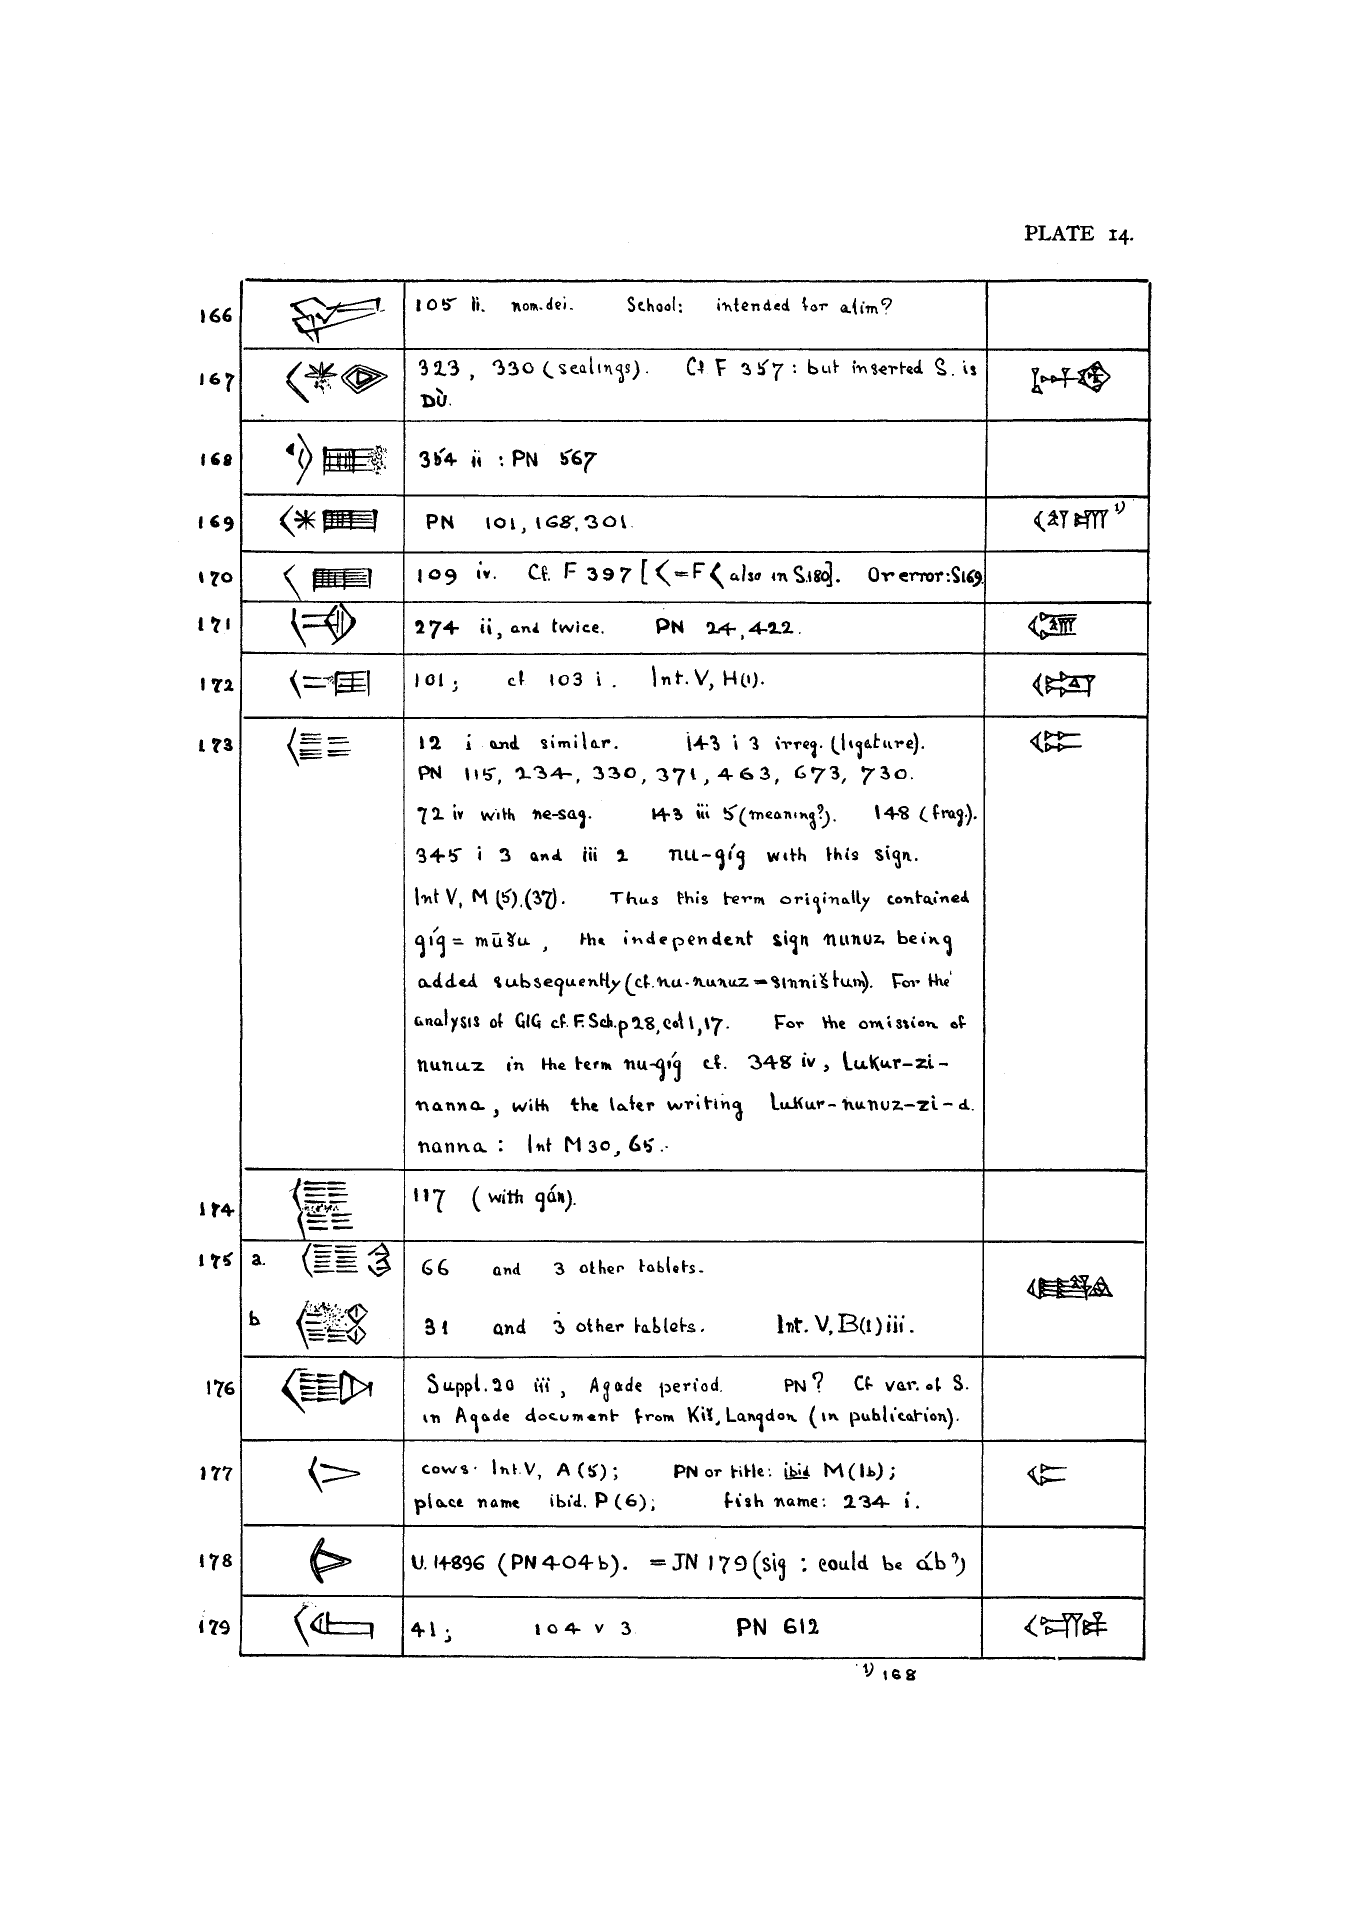 PLATE 14.
166 105 ii. nom. dei. School: intended for alim?
167 323, 330 (sealings). Cf F 357: but inserted S. is
DÙ.
168 354 ii : PN 567
169 PN 101, 168, 301. 1)
170 109 iv. Cf. F 397 [ = F also in S.180]. Or error: S169.
171 274 ii, and twice. PN 24, 422.
172 101; cf 103 i. Int. V, H(1).
173 12 i and similar. 143 i 3 irreg. (ligature).
PN 115, 234, 330, 371, 463, 673, 730.
72 iv with ne-sag. 143 iii 5 (meaning?). 148 (frag.).
345 i 3 and iii 2 nu-gíg with this sign.
Int V, M (5).(37). Thus this term originally contained
gíg = mūšu, the independent sign nunuz being
added subsequently (cf. nu-nunuz = sinništum). For the
analysis of GIG cf. F. Sch. p 28, col 1, 17. For the omission of
nunuz in the term nu-gíg cf. 348 iv, Lukur-zi-
nanna, with the later writing Lukur-nunuz-zi-d.
nanna: Int M 30, 65.
174 117 (with gán).
175 a. 66 and 3 other tablets.
b 31 and 3 other tablets. Int. V, B(1) iii.
176 Suppl. 20 iii, Agade period. PN? Cf var. of S.
in Agade document from Kiš, Langdon (in publication).
177 cows. Int. V, A (5); PN or title: ibid M (1b);
place name ibid. P (6); fish name: 234 i.
178 U. 14896 (PN 404 b). = JN 179 (sig : could be áb?)
179 41; 104 v 3 PN 612
1) 168